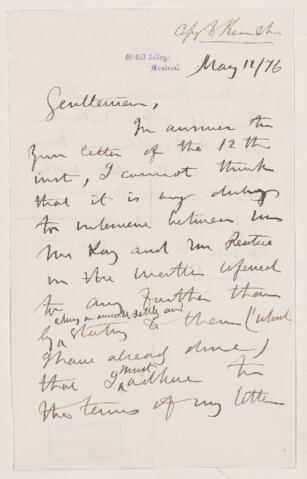 McGill College,
Montreal
May 12/76
Gentlemen,
In answer to
your letter of the 12th
inst, I cannot think
that it is my duty
to intervene between
Mr Kay and Mr
in the matter referred
to any further than
by stating to them (which
I have already done)
that I must adhere to
the terms of my letter